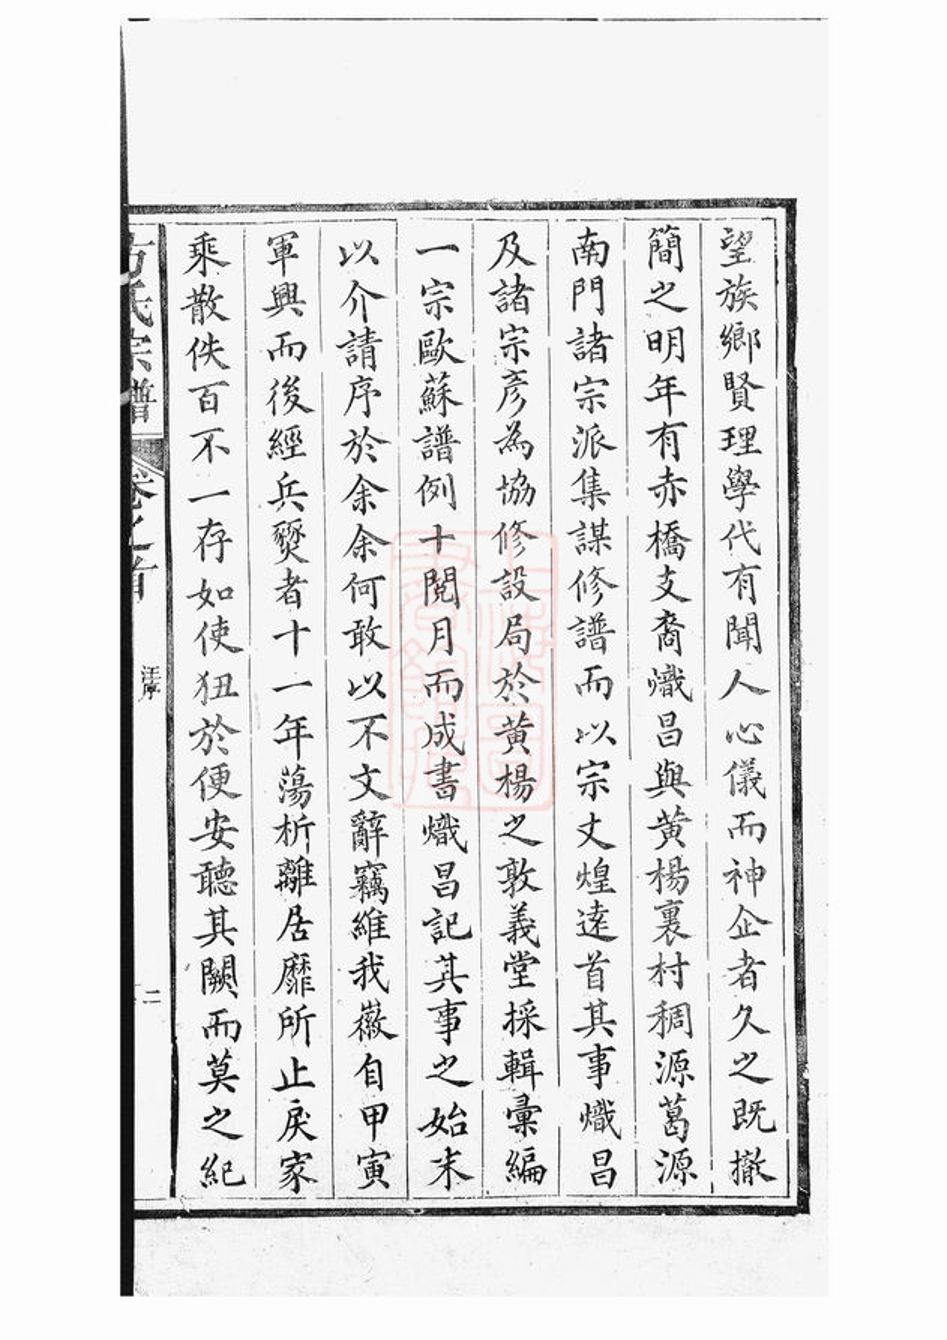 望族鄉賢理學代有聞人心儀而神企者久之既撤
簡之明年有赤橋支裔熾昌與黃楊裏村稠源葛源
南門諸宗派集謀修譜而以宗丈煌逵首其事熾昌
及諸宗彥為協修設局於黃楊之敦義堂採輯彙編
一宗歐蘇譜例十閱月而成書熾昌記其事之始末
以介請序於余余何敢以不文辭竊維我徽自甲寅
軍興而後經兵燹者十一年蕩析離居靡所止戾家
乘散佚百不一存如使狃於便安聽其闕而莫之紀
方氏宗譜
卷之首
汪序
二